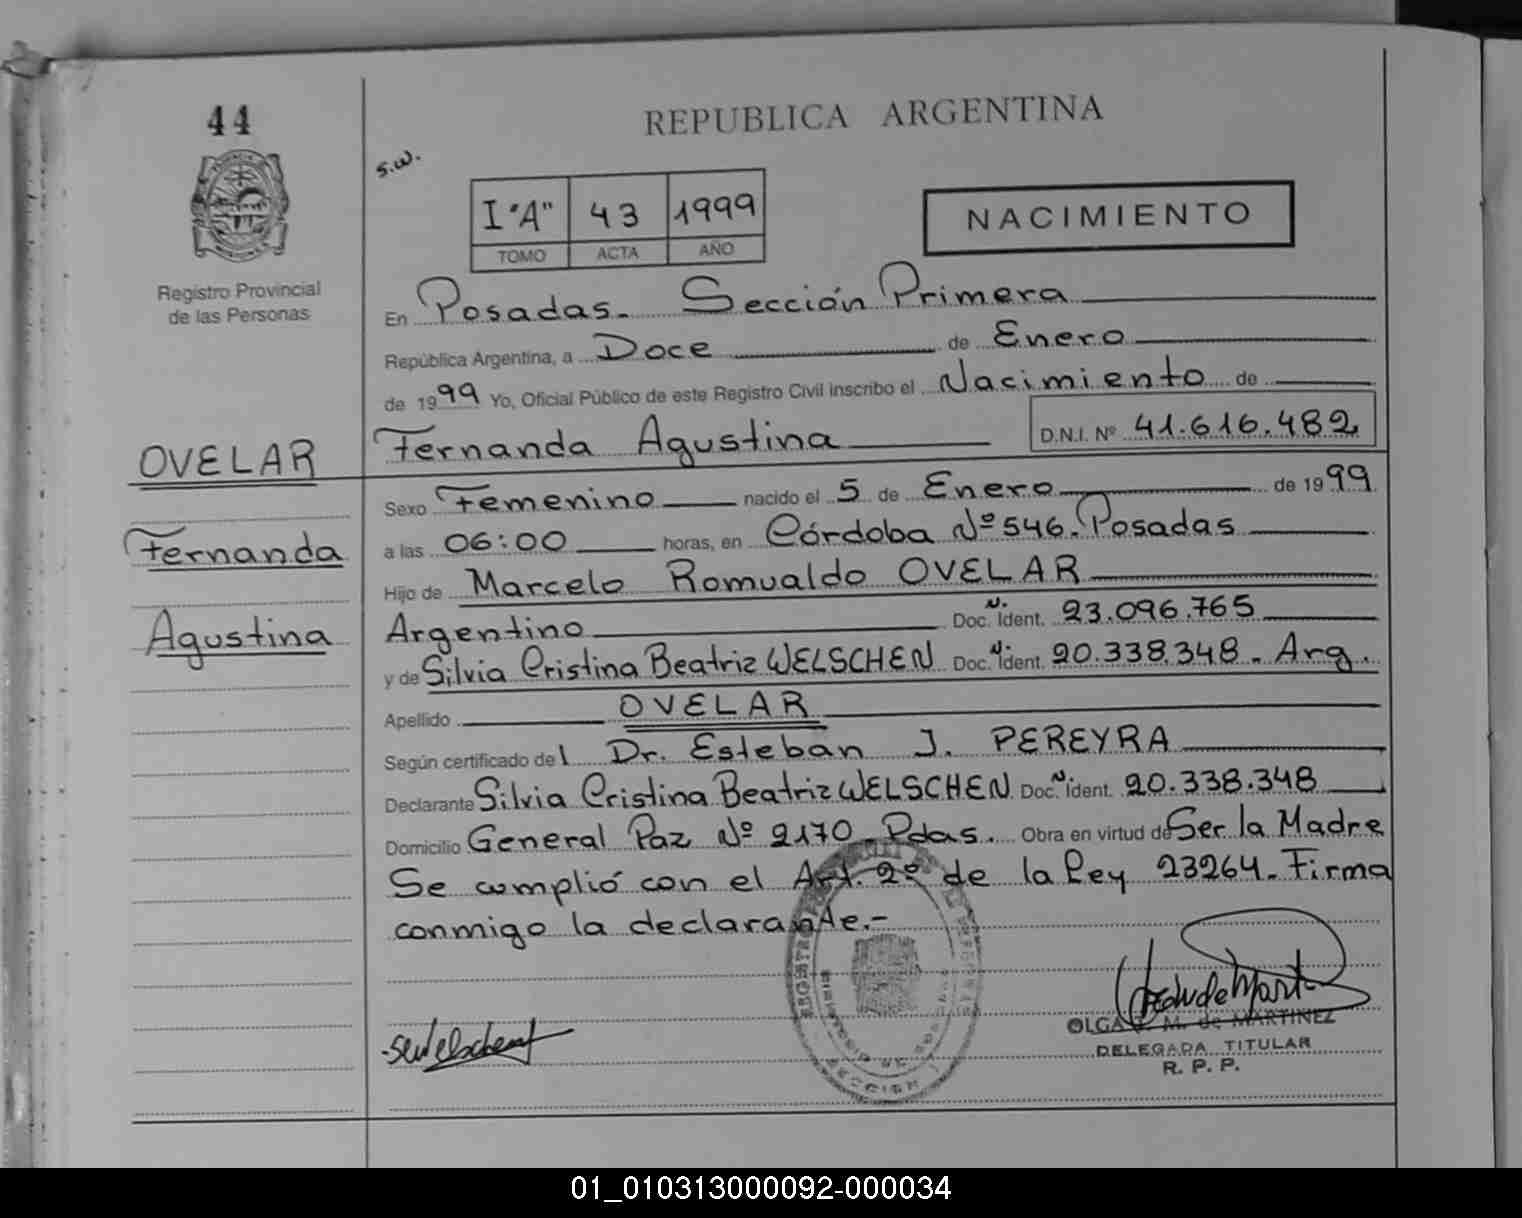 44
REPUBLICA ARGENTINA
s.w.
I "A" 43 1999
TOMO ACTA AÑO
NACIMIENTO
Registro Provincial
de las Personas
En Posadas. Sección Primera
República Argentina, a Doce de Enero
de 1999 Yo, Oficial Público de este Registro Civil inscribo el Nacimiento de
OVELAR
Fernanda Agustina D.N.I. Nº 41.616.482
Sexo Femenino nacido el 5 de Enero de 1999
Fernanda
a las 06:00 horas, en Córdoba Nº 546. Posadas
Hijo de Marcelo Romualdo OVELAR
Agustina
Argentino Doc. N. Ident. 23.096.765
y de Silvia Cristina Beatriz WELSCHEN Doc. N. Ident. 20.338.348. Arg.
Apellido OVELAR
Según certificado del Dr. Esteban J. PEREYRA
Declarante Silvia Cristina Beatriz WELSCHEN Doc. N. Ident. 20.338.348
Domicilio General Paz Nº 2170. Pdas. Obra en virtud de Ser la Madre
Se cumplió con el Art. 2º de la Ley 23264. Firma
conmigo la declarante.-
OLGA M. de MARTINEZ
DELEGADA TITULAR
R. P. P.
01_010313000092-000034